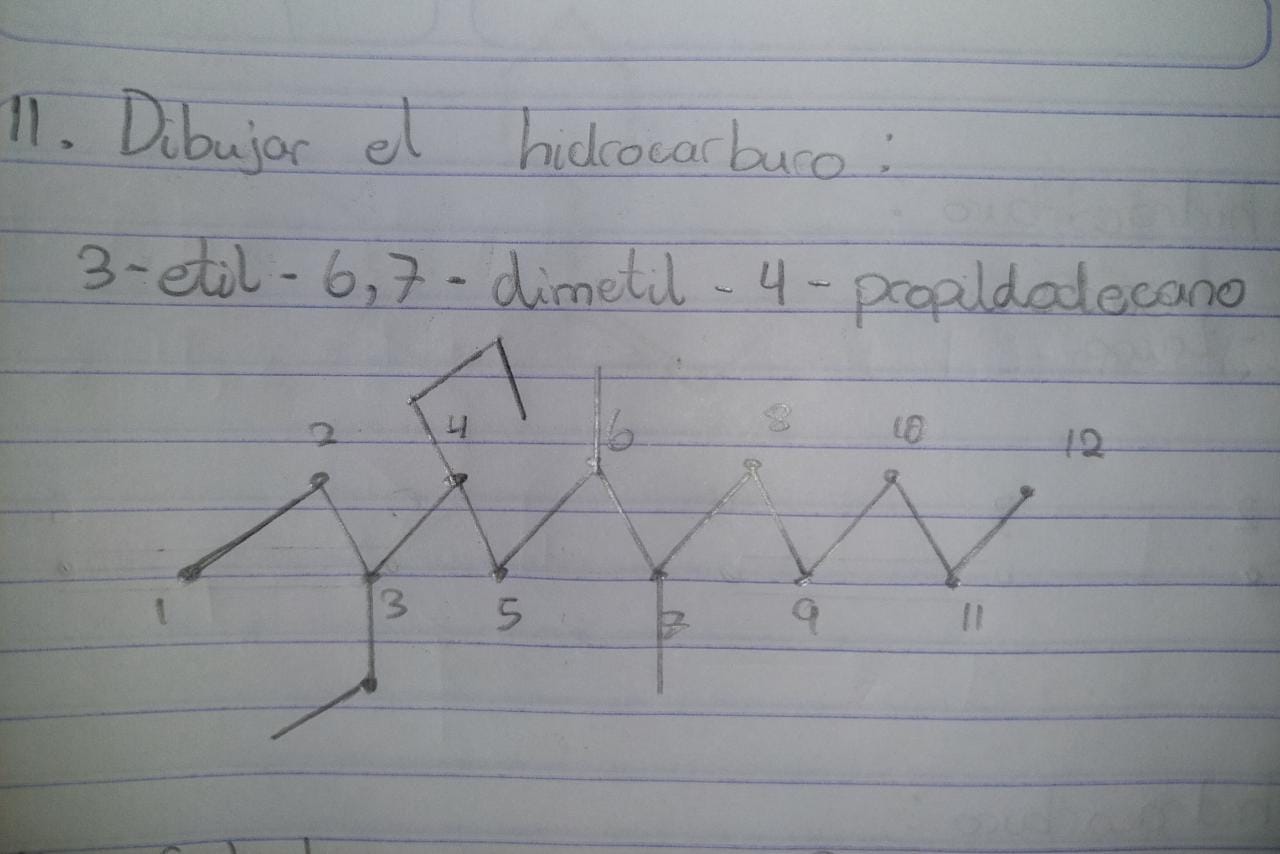 11. Dibujar el hidrocarburo:
3-etil-6,7-dimetil-4-propildodecano
2 4 6 8 10 12
1 3 5 7 9 11